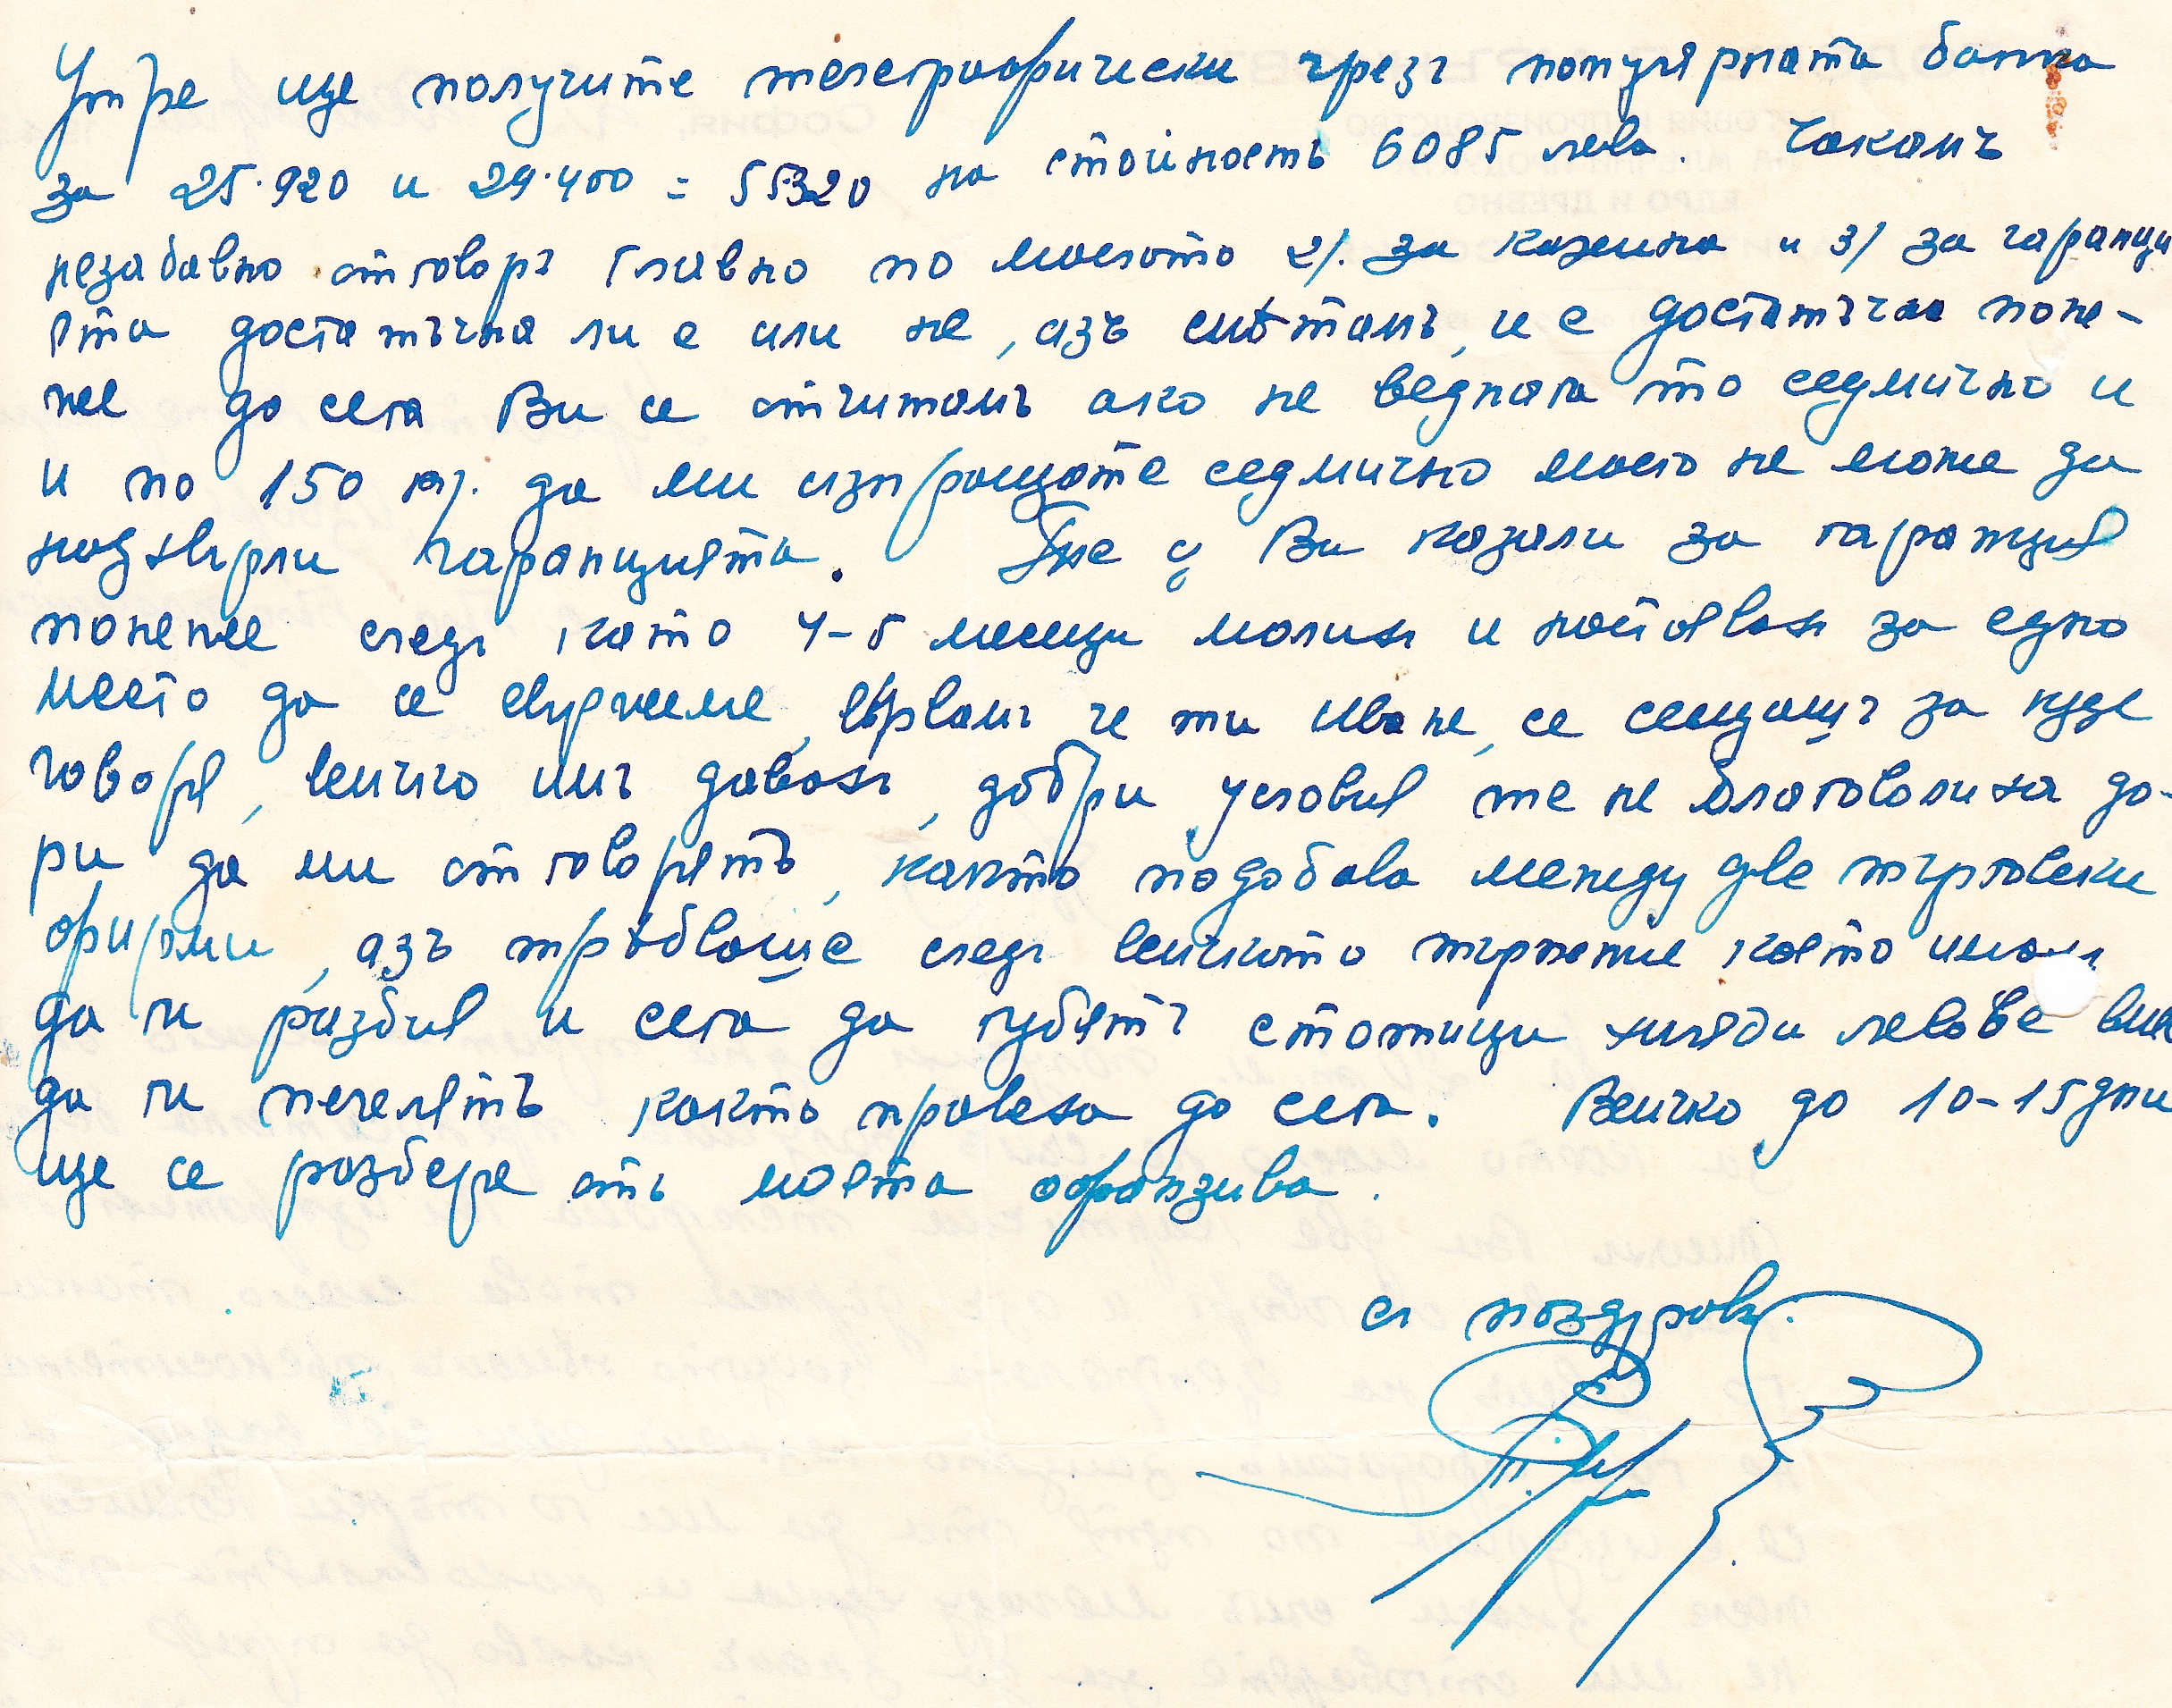 Утре ще получите телеграфически чрезъ популярната банка
за 25.920 и 29.400 = 55320 на стойность 6085 лева. Чакамъ
незабавно отговоръ главно по маслото 2/. за кашкавала и 3/ за гаранци
ята достатъчна ли е или не, азъ смѣтамъ, и е достатъчна поне-
же до сега Ви се отчитамъ ако не веднага то седмично и
и по 150 кг. да ми изпращате седмично масло не може да
надхвърли гаранцията. Тѣ Ви казали за гаранция
понеже следъ като 4-5 месеци молихъ и настоявахъ за едно
место да се свържеме, вѣрвамъ че ти Иване, се сещашъ за кѫде
говоря, всичко имъ давахъ, добри условия те не благоволиха до-
ри да ми отговорятъ, както подобава между две търговски
фирми, азъ трѣбваше следъ всичкото търпение което имахъ
да ги разбия и сега да губятъ стотици хиляди левове вместо
да ги печелятъ както правеха до сега. Всичко до 10-15 дни
ще се разбере отъ моята офанзива.
съ поздравъ.